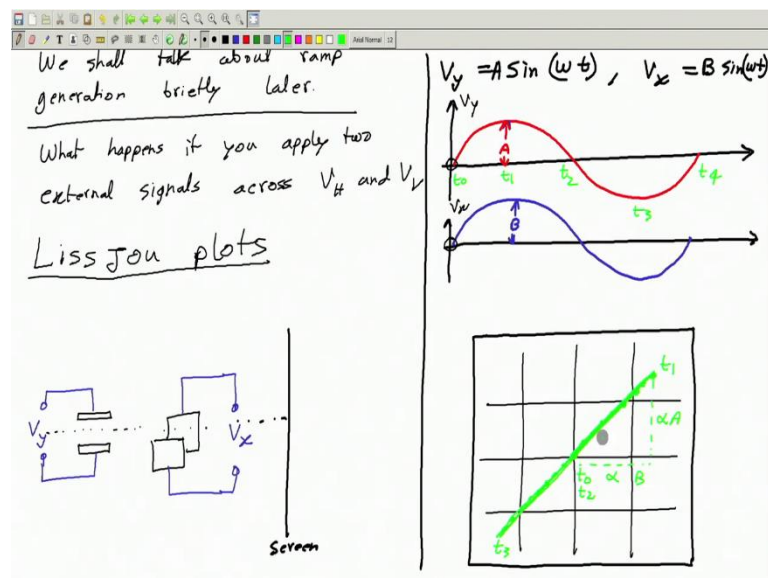 Arial Normal 12
We shall talk about ramp
generation briefly later.
What happens if you apply two
external signals across V_H and V_V
Liss Jou plots
V_y
V_x
Screen
V_y = A Sin (ωt) , V_x = B sin(ωt)
V_y
A
t_0 t_1 t_2 t_3 t_4
V_x
B
t_1
αA
t_0 α B
t_2
t_3